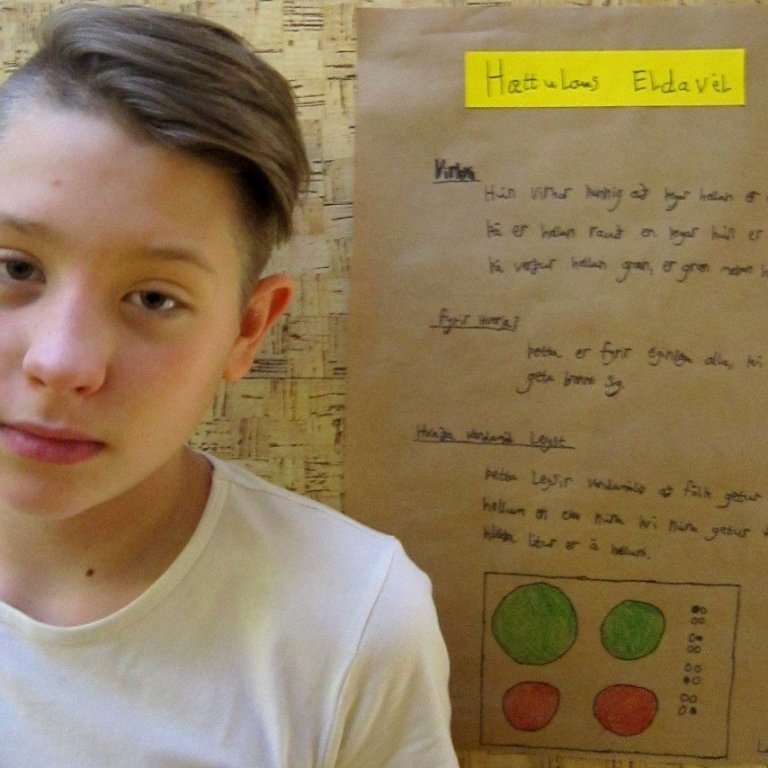 Hættulaus Eldavél
Virkni
Hún virkar þannig að þegar hellan er
þá er hellan rauð en þegar hún er
þá verður hellan græn, er græn meðan h
Fyrir hverja?
þetta er fyrir eiginlega alla, því
geta brennt sig.
Hvaða vandamál leyst
þetta Leysir vandamálið að fólk getur
hellum en ekki núna því núna getur
litur er á hellum.